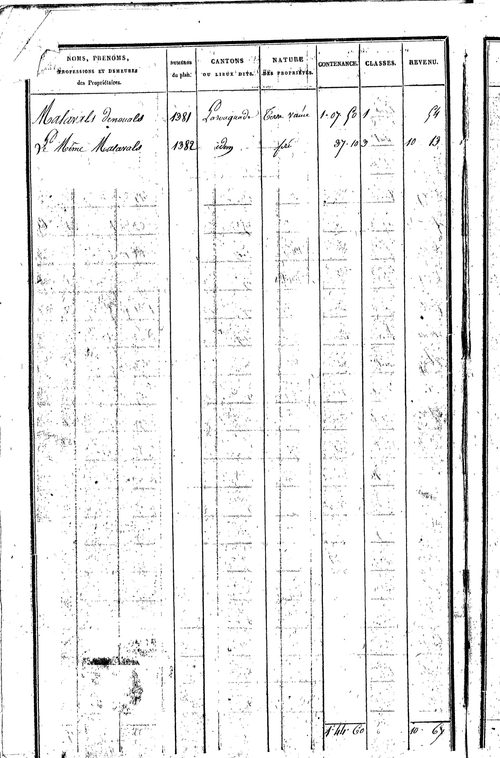 NOMS, PRÉNOMS, PROFESSIONS ET DEMEURES des Propriétaires. NUMÉROS du plan. CANTONS OU LIEUX DITS. NATURE DES PROPRIÉTÉS. CONTENANCE. CLASSES. REVENU.
Matavals 1381 Terre 1. 07 50 1 54
Le Même Matavals 1382 idem pré 37. 10 3 10 13
1. 44. 60 10. 67